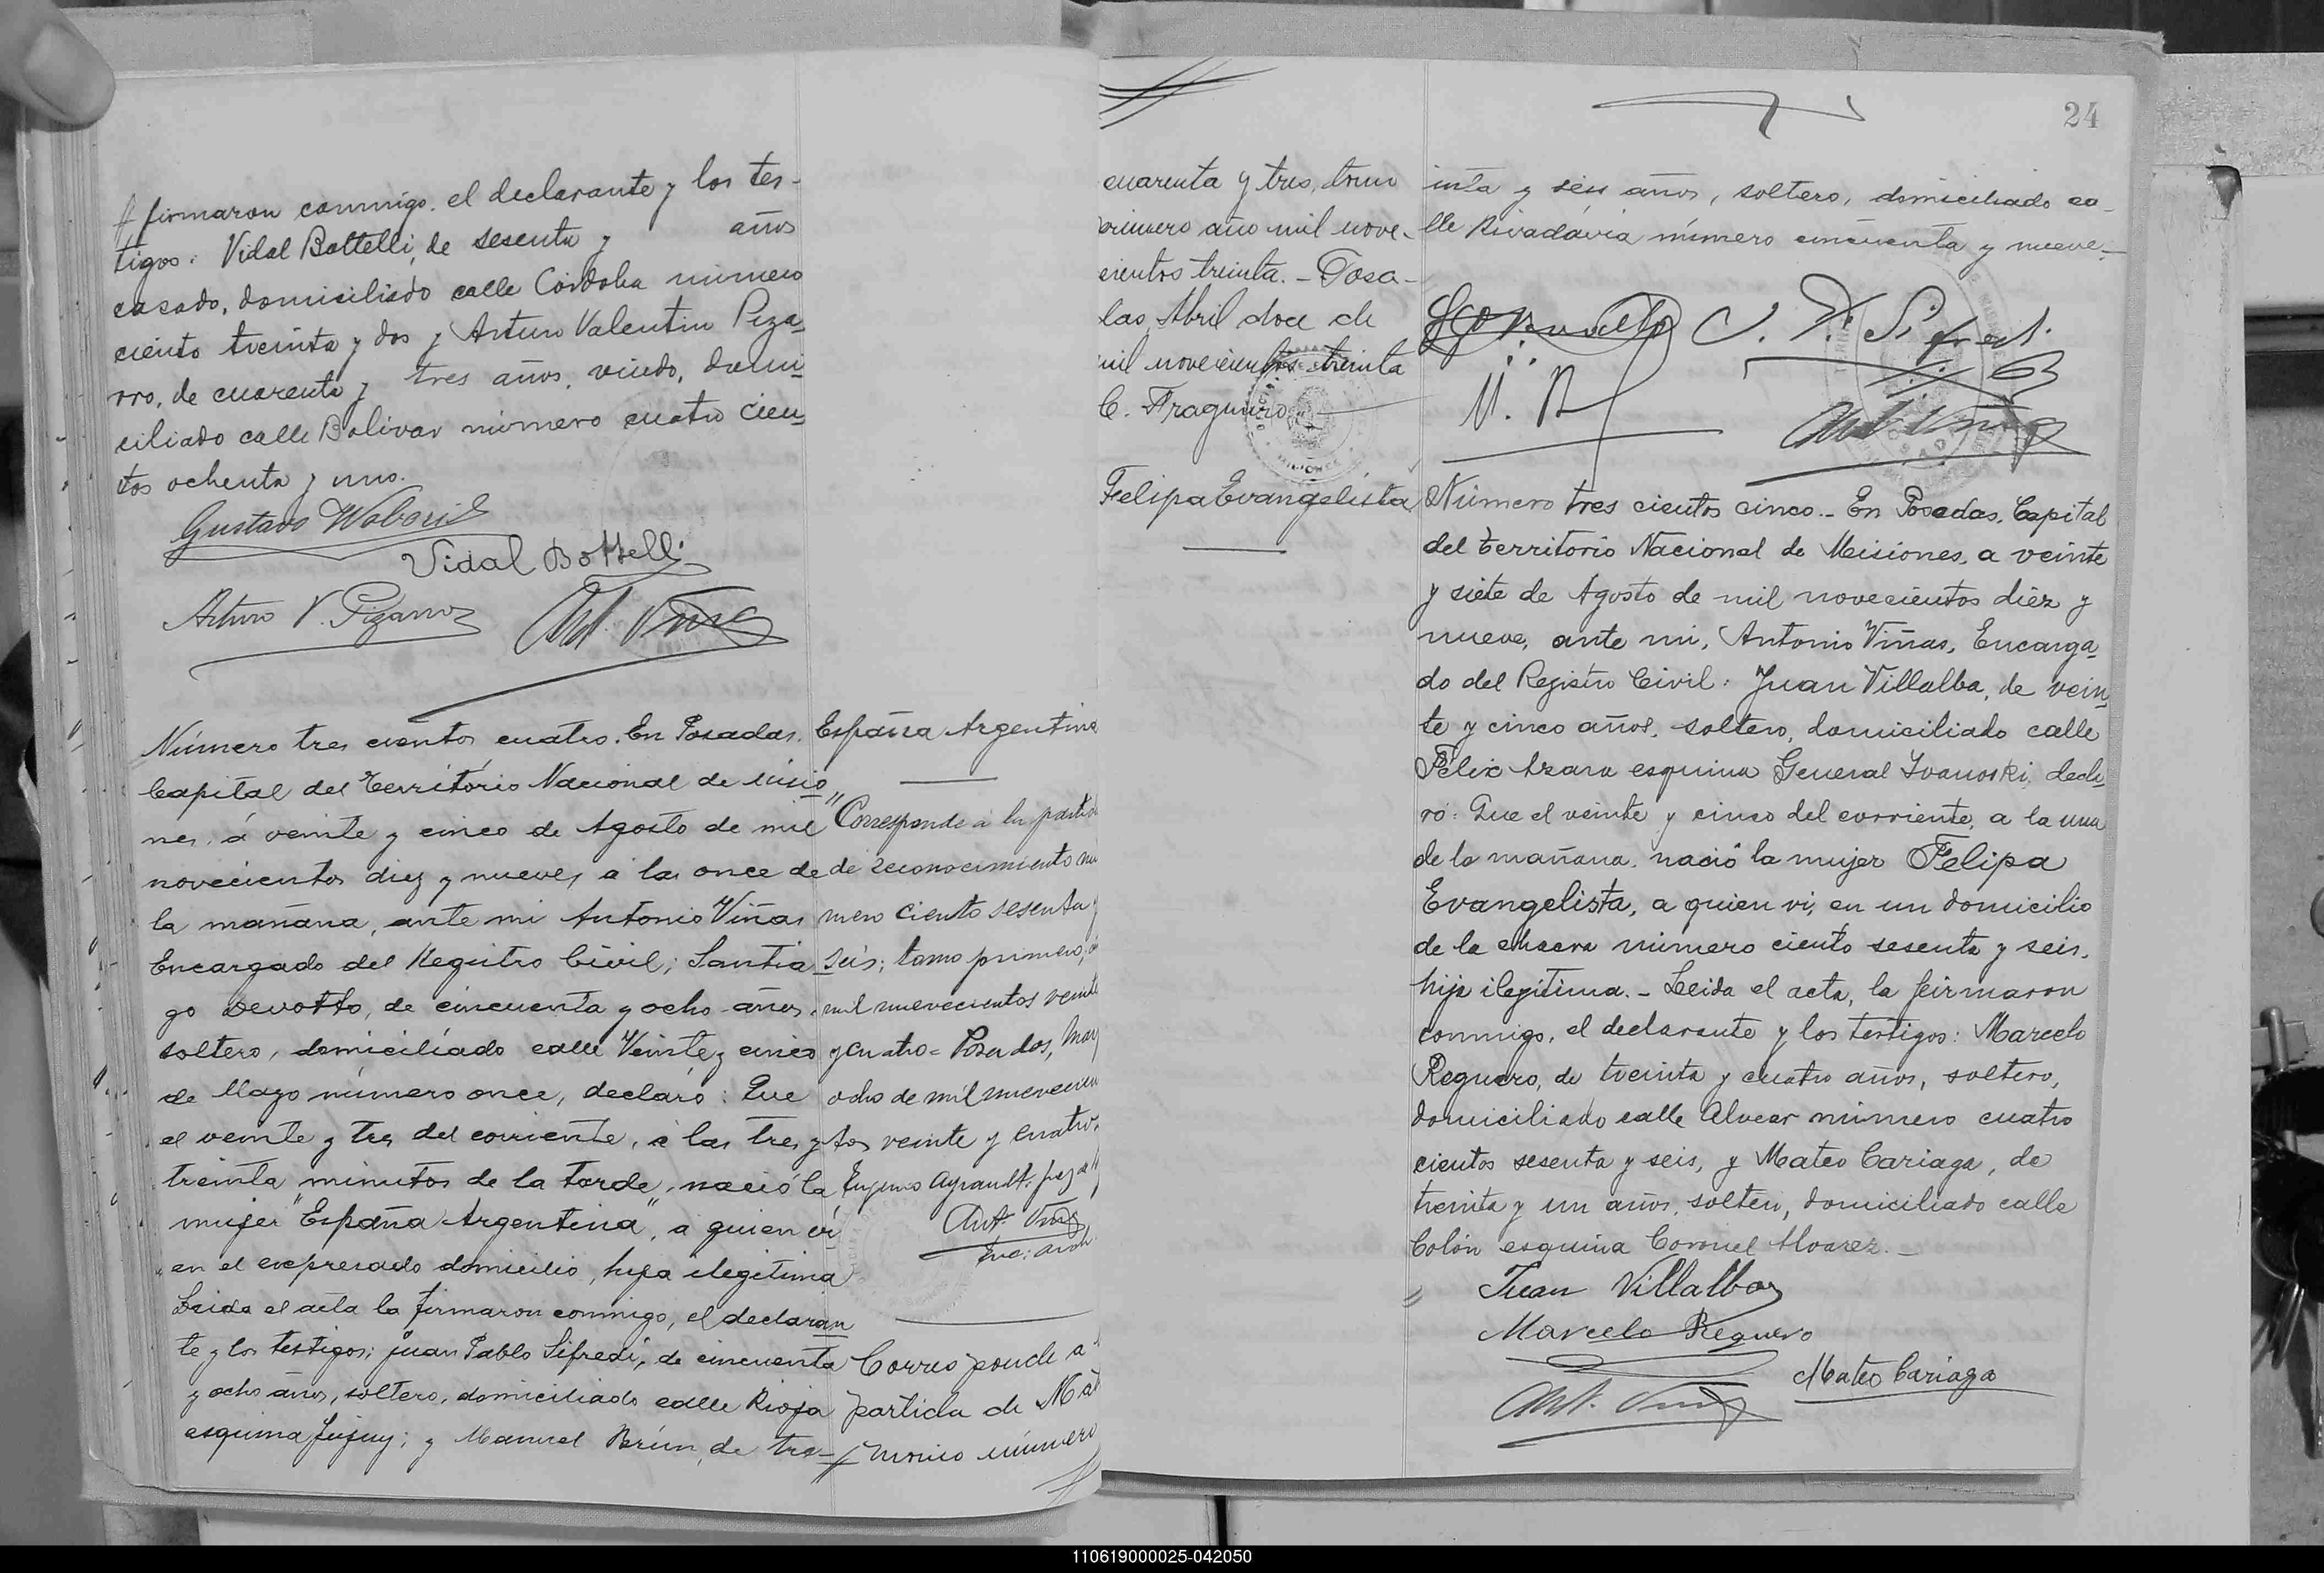 firmaron conmigo, el declarante y los tes-
tigos: Vidal Bottelli, de sesenta y años
casado, domiciliado calle Córdoba número
ciento treinta y dos y Arturo Valentin Piza-
rro, de cuarenta y tres años, viudo, domi-
ciliado calle Bolivar número cuatro cien-
tos ochenta y uno.
Gustavo
Vidal Bottelli
Arturo V. Pizarro
Ant. Viñas
Número tres cientos cuatro. En Posadas.
Capital del Territorio Nacional de Misio-
nes, á veinte y cinco de Agosto de mil
novecientos diez y nueve, a las once de
la mañana, ante mi Antonio Viñas
Encargado del Registro Civil; Santia-
go Devotto, de cincuenta y ocho años,
soltero, domiciliado calle Veinte y cinco
de Mayo número once, declaró: Que
el veinte y tres del corriente, a las tres y
treinta minutos de la tarde, nació la
mujer "España Argentina", a quien vi
en el expresado domicilio, hija ilegitima
Leida el acta la firmaron conmigo, el declaran
te y los testigos: Juan Pablo Sifredi, de cincuenta
y ocho años, soltero, domiciliado calle Rioja
esquina Jujuy; y Manuel Brún, de tre-
España Argentina
Corresponde a la partida
de reconocimiento nu
mero ciento sesenta y
seis; tomo primero,
mil nuevecientos veinte
y cuatro = Posadas, May
ocho de mil nuevecien
tos veinte y cuatro.
Ant. Viñas
Corresponde a
partida de Mat
monio número
24
cuarenta y tres, tomo
primero año mil nove-
cientos treinta. - Posa-
das, Abril doce de
mil novecientos treinta
C. Fragueiro
inta y seis años, soltero, domiciliado ca-
lle Rivadavia número cincuenta y nueve.-
J. P. Sifredi
M. B
Ant. Viñas
Felipa Evangelista
Número tres cientos cinco.- En Posadas, Capital
del Territorio Nacional de Misiones, a veinte
y siete de Agosto de mil novecientos diéz y
nueve, ante mi, Antonio Viñas, Encarga-
do del Registro Civil: Juan Villalba, de vein-
te y cinco años, soltero, domiciliado calle
Félix Azara esquina General Ivanoski, decla-
ró: Que el veinte y cinco del corriente, a la una
de la mañana, nació la mujer Felipa
Evangelista, a quien vi, en un domicilio
de la chacra número ciento sesenta y seis,
hija ilegítima. - Leida el acta, la firmaron
conmigo, el declarante y los testigos: Marcelo
Reguero, de treinta y cuatro años, soltero,
domiciliado calle Alvear número cuatro
cientos sesenta y seis, y Mateo Cariaga, de
treinta y un años, soltero, domiciliado calle
Colón esquina Coronel Alvarez. -
Juan Villalba
Marcelo Reguero
Mateo Cariaga
Ant. Viñas
110619000025-042050